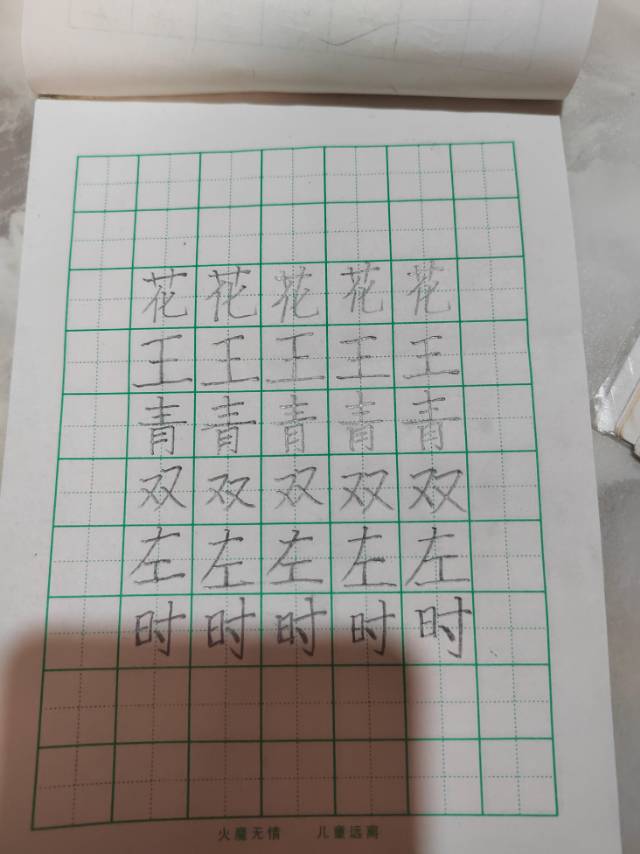 花花花花花
王王王王王
青青青青青
双双双双双
左左左左左
时时时时时
火魔无情 儿童远离